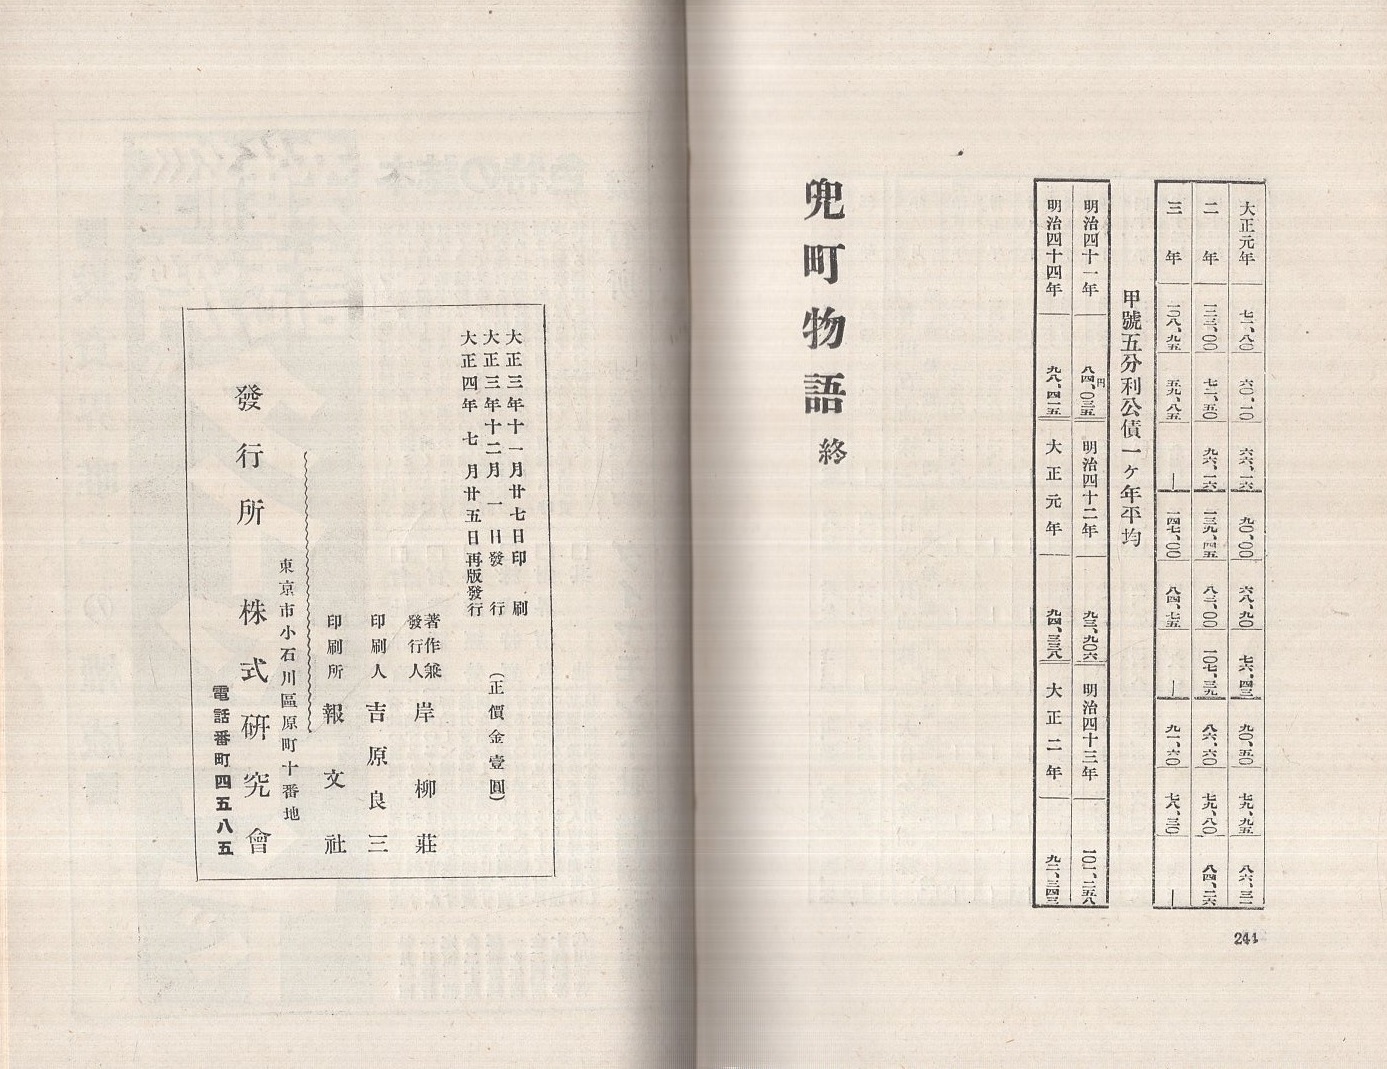 大正元年 七一、八〇 六〇、一〇 六六、一六 九〇、〇〇 六八、九〇 七六、四三 九〇、五〇 七九、九五 八六、三一
二年 一二三、〇〇 七二、五〇 九六、一六 一三九、四五 八二、〇〇 一〇七、三九 八六、六〇 七九、八〇 八四、二六
三年 一〇八、九五 五九、八五 — 一四七、〇〇 八四、七五 — 九一、六〇 七八、三〇 —
甲號五分利公債一ヶ年平均
明治四十一年 八四、〇三五円 明治四十二年 九三、九〇六 明治四十三年 一〇一、二五八
明治四十四年 九八、四一五 大正元年 九四、三三八 大正二年 九二、三四三
兜町物語 終
241
大正三年十一月廿七日印刷
大正三年十二月一日發行
大正四年七月廿五日再版發行
(正價金壹圓)
著作兼發行人 岸柳莊
印刷人 吉原良三
印刷所 報文社
東京市小石川區原町十番地
發行所 株式研究會
電話番町四五八五